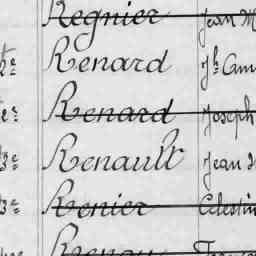 Regnier Jean M
2e Renard Jh
Renard Joseph
3e Renault Jean
3e Renier Célestin